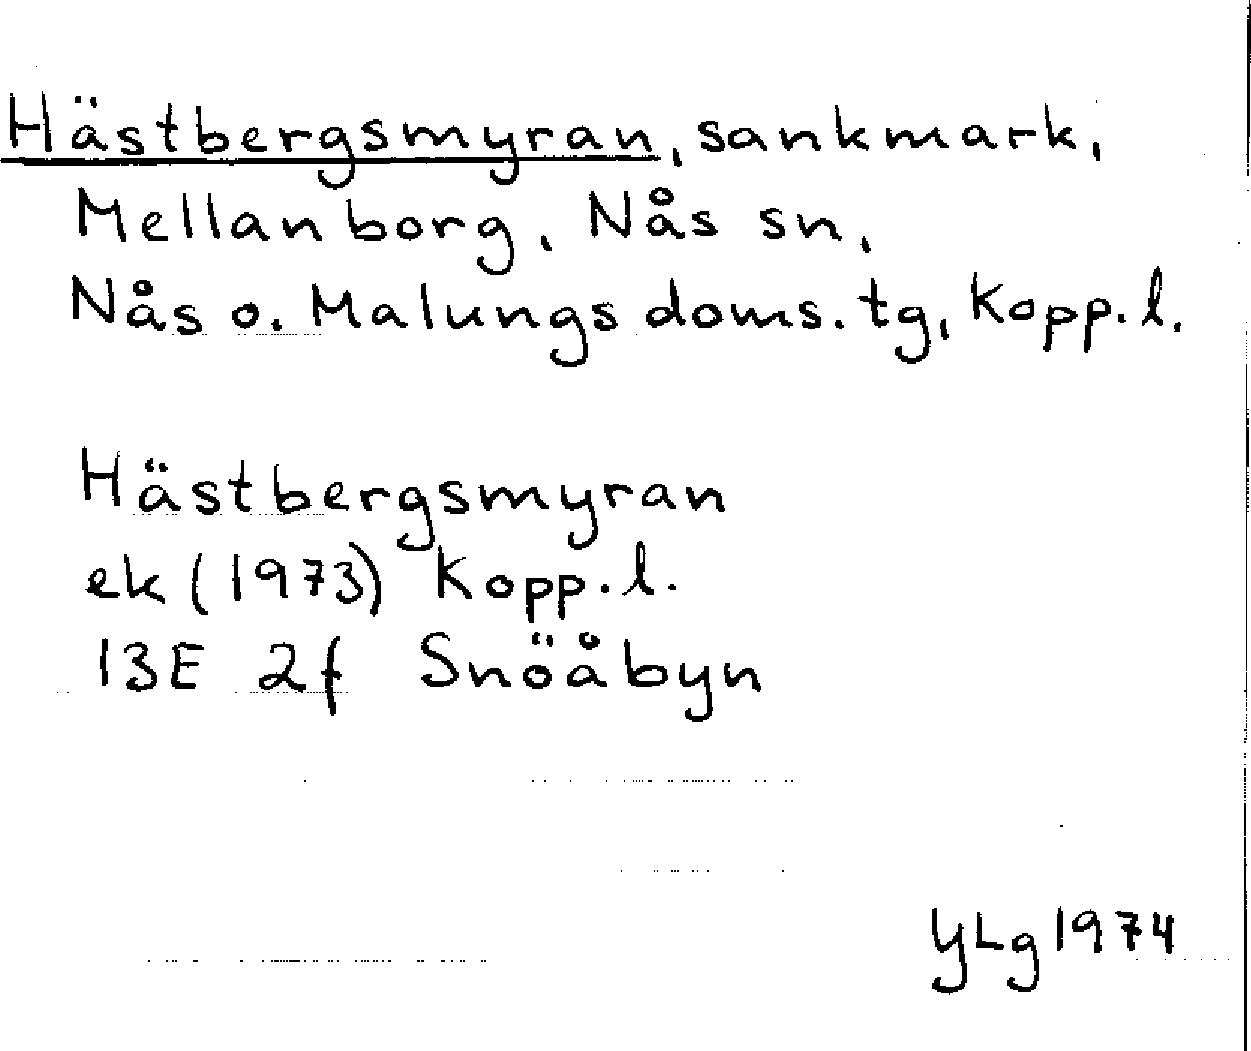 Hästbergsmyran, sankmark,
Mellanborg, Nås sn,
Nås o. Malungs doms. tg, Kopp. l.
Hästbergsmyran
ek (1973) Kopp. l.
13E 2f Snöåbyn
YLg 1974